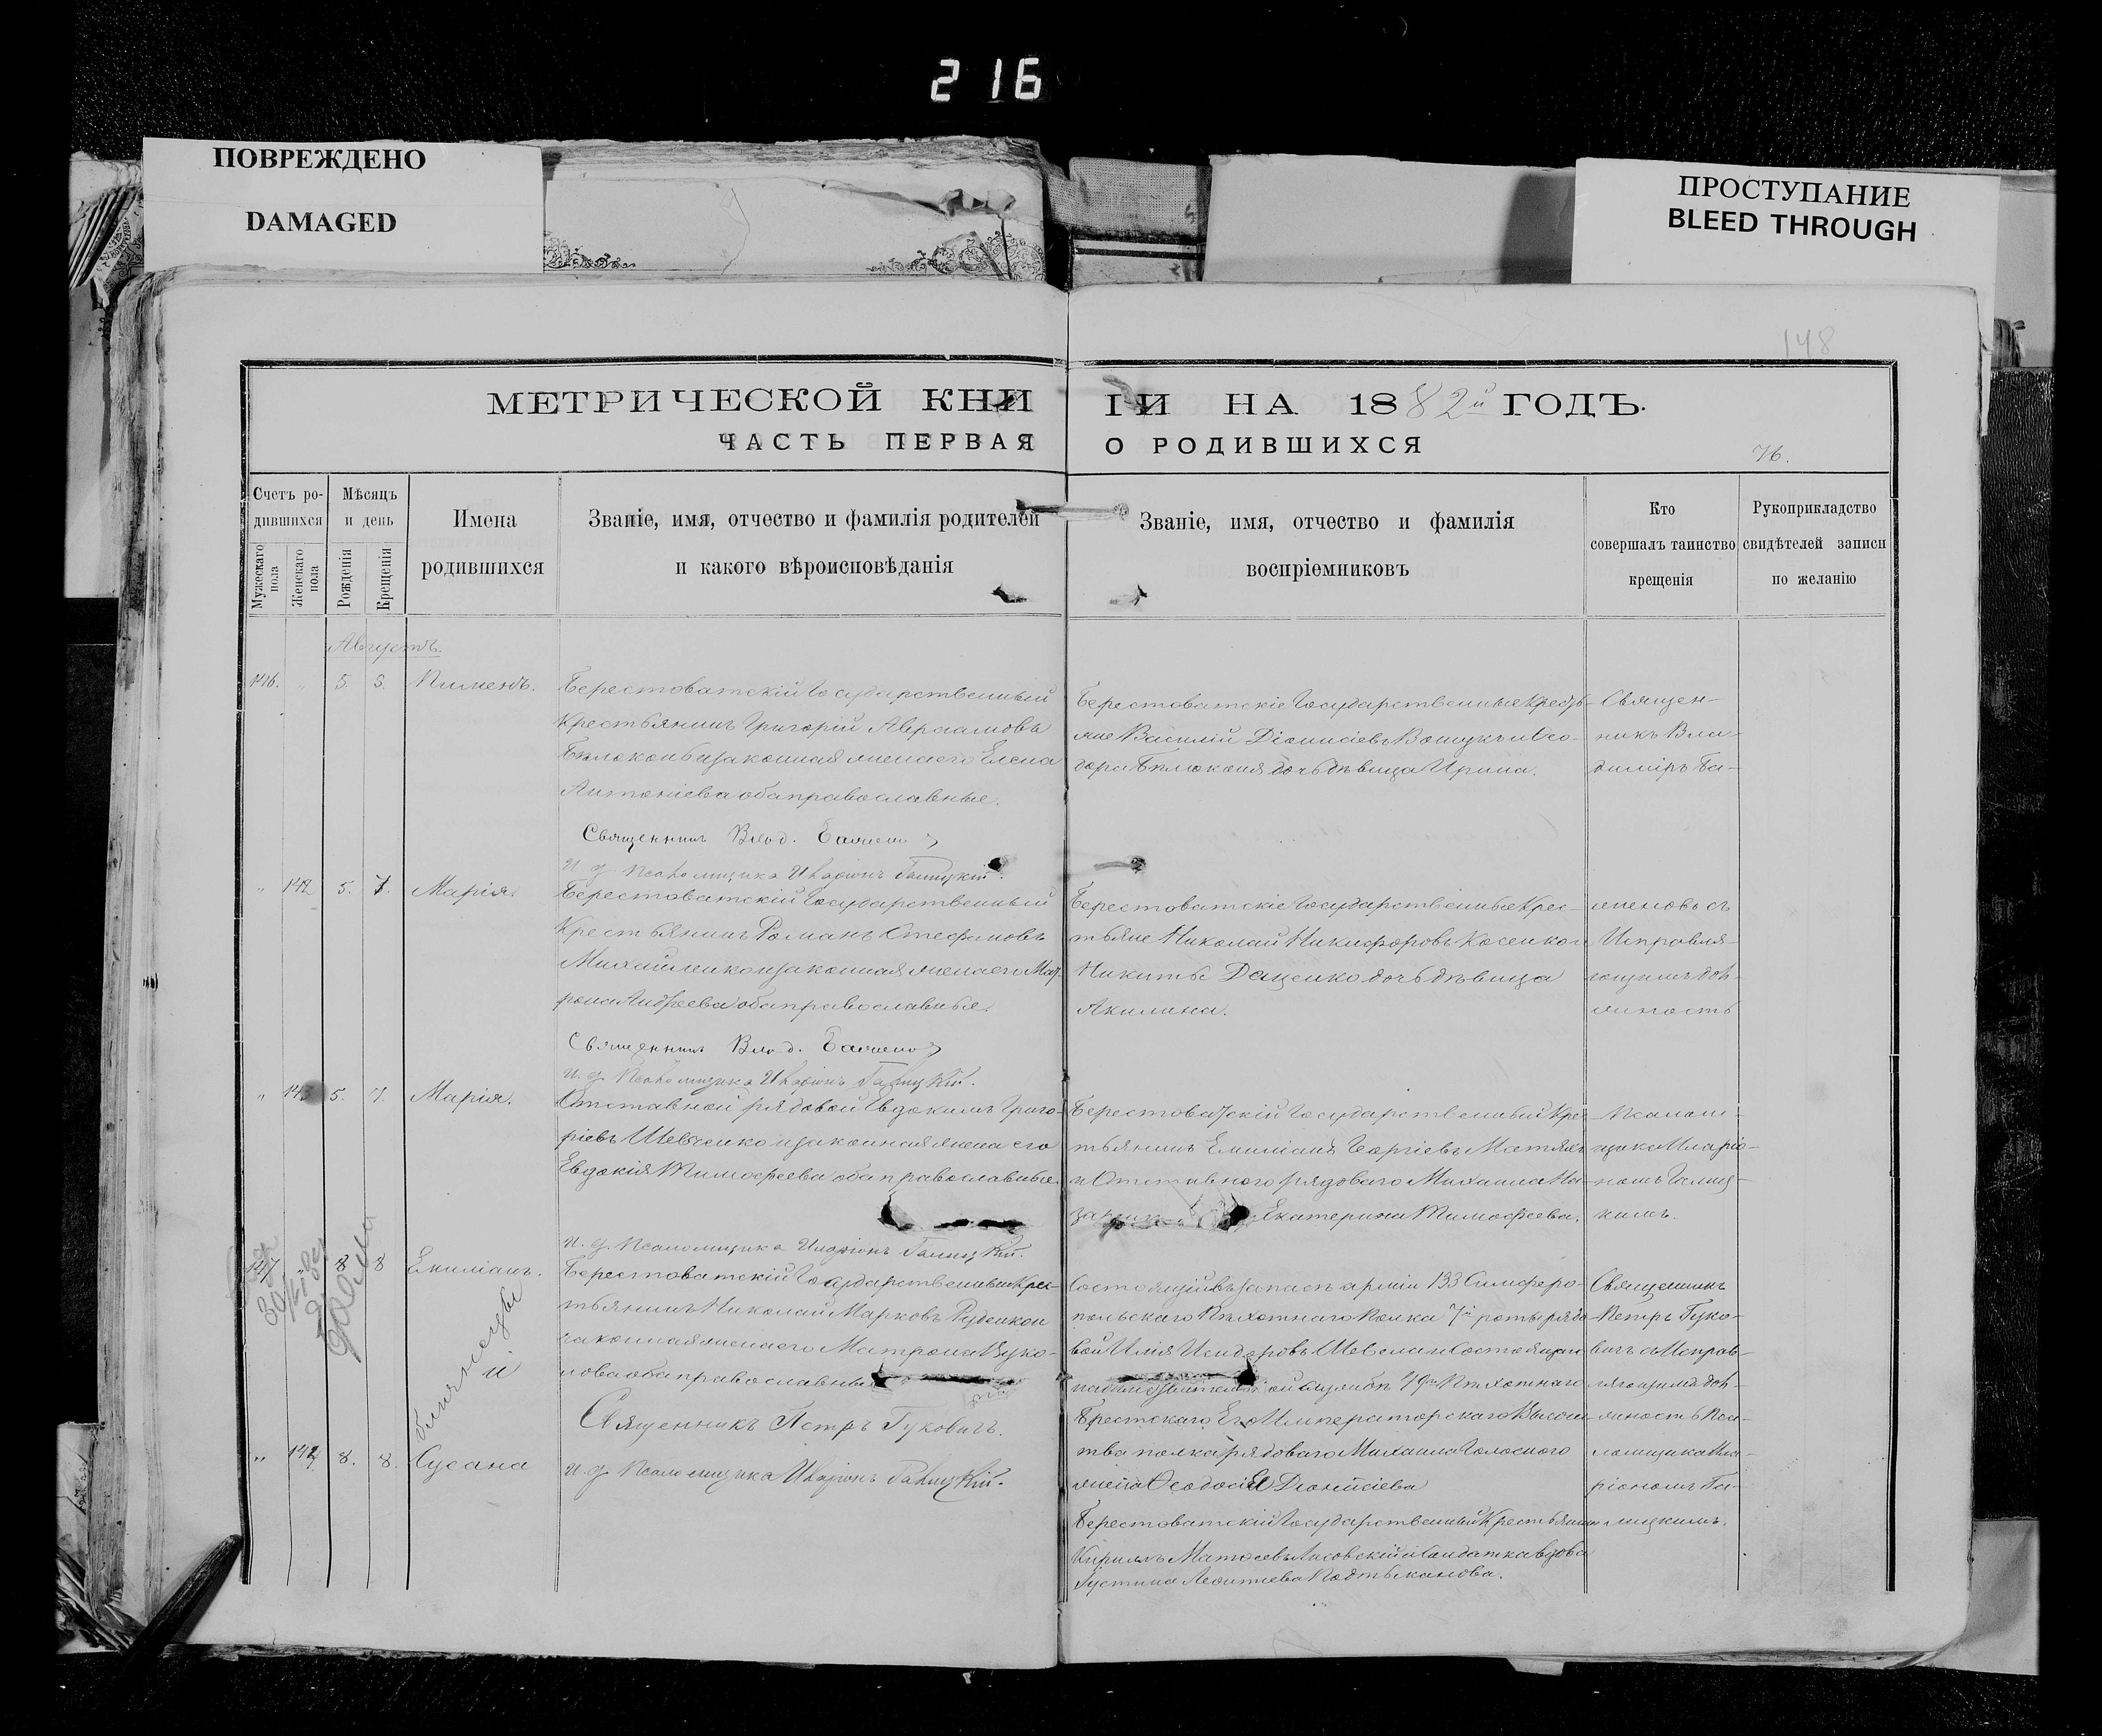 216
ПОВРЕЖДЕНО
DAMAGED
ПРОСТУПАНИЕ
BLEED THROUGH
148
МЕТРИЧЕСКОЙ КНИ
ЧАСТЬ ПЕРВАЯ
ГИ НА 1882й ГОДЪ.
О РОДИВШИХСЯ
76.
Счетъ ро-
дившихся
Мужескаго пола
Женскаго пола
Мѣсяцъ
и день
Рожденія
Крещенія
Имена
родившихся
Званіе, имя, отчество и фамилія родителей
и какого вѣроисповѣданія
Званіе, имя, отчество и фамилія
воспріемниковъ
Кто
совершалъ таинство
крещенія
Рукоприкладство
свидѣтелей записи
по желанію
Августъ.
146. " 5. 5. Пименъ.
Берестоватскій Государственный
Крестьянинъ Григорій Авраамовъ
Бѣлоконь и законная жена его Елена
Антоніева оба православные.
Священникъ Влад.
и. д. Псаломщика Иларіонъ Галицкій.
Берестоватскіе Государственные Кресть-
яне Василій Діонисіевъ и Ѳео-
дора Бѣлоконя дочь дѣвица Ирина.
Священ-
никъ Вла-
диміръ Ба-
" 142 5. 7. Марія.
Берестоватскій Государственный
Крестьянинъ Романъ Стефановъ
Михайленко и законная жена его Мат-
рона Андреева оба православные.
Священникъ Влад.
и. д. Псаломщика Иларіонъ Галицкій.
Берестоватскіе Государственные Крес-
тьяне Николай Никифоровъ Косенко и
Никиты Даценко дочь дѣвица
Акилина.
меновъ съ
Исправля-
ющимъ дол-
жность
" 143 5. 7. Марія.
Отставной рядовой Евдокимъ Григо-
ріевъ Шевченко и законная жена его
Евдокія Тимофеева оба православные.
и. д. Псаломщика Иларіонъ Галицкій.
Берестоватскій Государственный Крес-
тьянинъ Емиліанъ Георгіевъ Матяхъ
и Отставного рядоваго Михаила
Екатерина Тимофеева.
Псалом-
щика Иларіо-
номъ Галиц-
кимъ.
147. " 8 8 Емиліанъ.
Берестоватскій Государственный Крес-
тьянинъ Николай Марковъ Руденко и
законная жена его Матрона Вуко-
лова оба православные
Священникъ Петръ Гуковичъ.
и. д. Псаломщика Иларіонъ Галицкій.
Состоящій въ запасѣ арміи 133 Симферо-
польскаго Пѣхотнаго Полка 7й роты рядо-
вой Илія Исидоровъ и Состоящаго
на службѣ 49го Пѣхотнаго
Брестскаго Его Императорскаго Высоче-
тва полка рядоваго Михаила Голосного
жена Ѳеодосія Діонисіева
Священникъ
Петръ Гуко-
вичъ съ Исправ-
ляющимъ дол-
жность Пса-
ломщика Ила-
ріономъ Га-
лицкимъ.
и близнецы
" 144 8. 8. Сусана
Берестоватскій Государственный Крестьянинъ
Кириллъ Матѳеевъ Лисовскій и Солдатка вдова
Густина Леонтіева